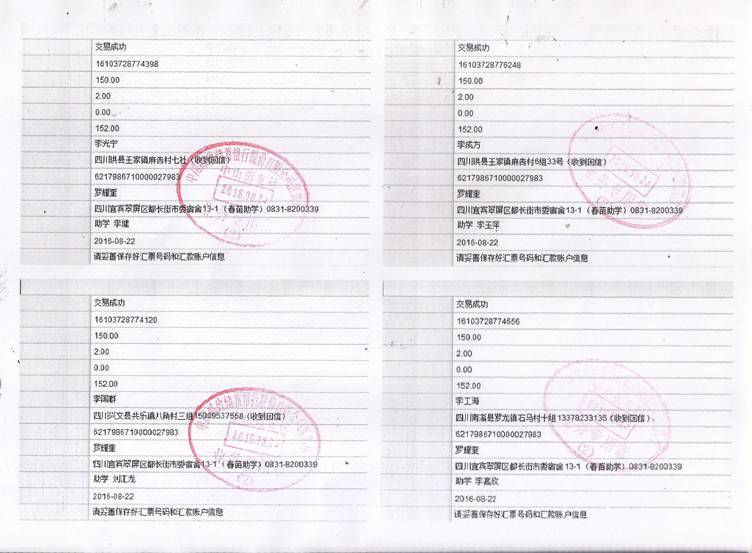 交易成功
16103728774398
150.00
2.00
0.00
152.00
李光宁
四川珙县王家镇麻舍村七社（收到回信）
6217986710000027983
罗耀奎
四川宜宾翠屏区都长街市委宿舍13-1（春苗助学）0831-8200339
助学 李健
2016-08-22
请妥善保存好汇票号码和汇款账户信息
2016.10.24
(2)
交易成功
16103728776248
150.00
2.00
0.00
152.00
李成方
四川珙县王家镇麻舍村6组33号（收到回信）
6217986710000027983
罗耀奎
四川宜宾翠屏区都长街市委宿舍13-1（春苗助学）0831-8200339
助学 李玉萍
2016-08-22
请妥善保存好汇票号码和汇款账户信息
(2)
交易成功
16103728774120
150.00
2.00
0.00
152.00
李国群
四川兴文县共乐镇八角村三组15009537558（收到回信）
6217986710000027983
罗耀奎
四川宜宾翠屏区都长街市委宿舍13-1（春苗助学）0831-8200339
助学 刘江龙
2016-08-22
请妥善保存好汇票号码和汇款账户信息
(2)
交易成功
16103728774656
150.00
2.00
0.00
152.00
李工海
四川南溪县罗龙镇石马村十组13378233136（收到回信）
6217986710000027983
罗耀奎
四川宜宾翠屏区都长街市委宿舍13-1（春苗助学）0831-8200339
助学 李嘉欣
2016-08-22
请妥善保存好汇票号码和汇款账户信息
(2)